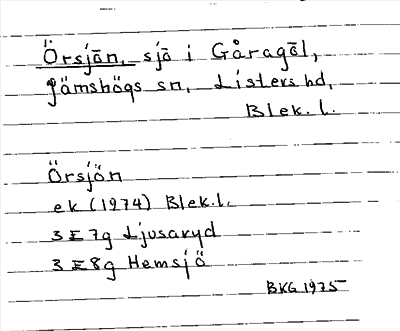 Örsjön, sjö i Gåragöl,
Jämshögs sn, Listers hd,
Blek. l.
Örsjön
ek (1974) Blek.l.
3E7g Ljusaryd
3E8g Hemsjö
BKG 1975